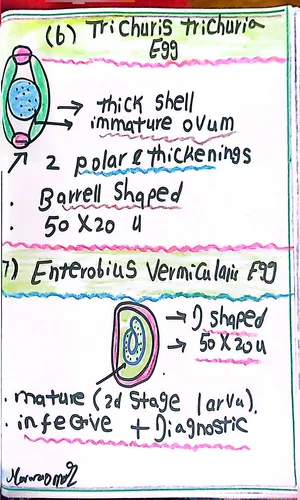 (6) Trichuris trichuria
Egg
→ thick shell
→ immature ovum
2 polar thickenings
. Barrell shaped
. 50 X 20 u
7) Enterobius Vermicularis Egg
→ D shaped
→ 50 X 20 u
. mature (2d stage larva).
. infective + Diagnostic